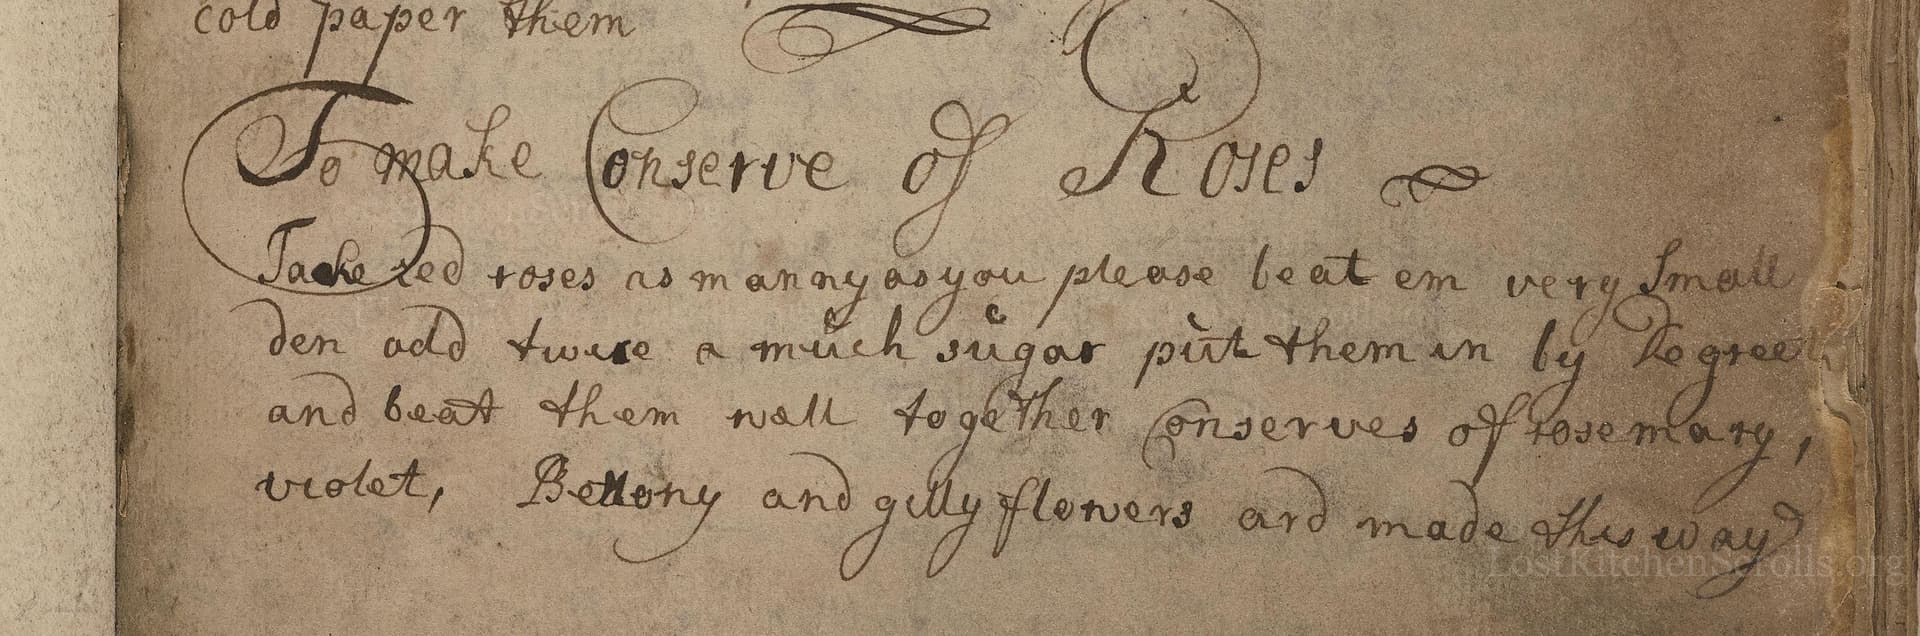 cold paper them
To make Conserve of Roses
Tacke red roses as manny as you please beat em very Small
den add twice a much sugar put them in by Degree
and beat them well together Conserves of rosemary,
violet, Bettony and gilly flowers ard made this way
LostKitchenScrolls.org